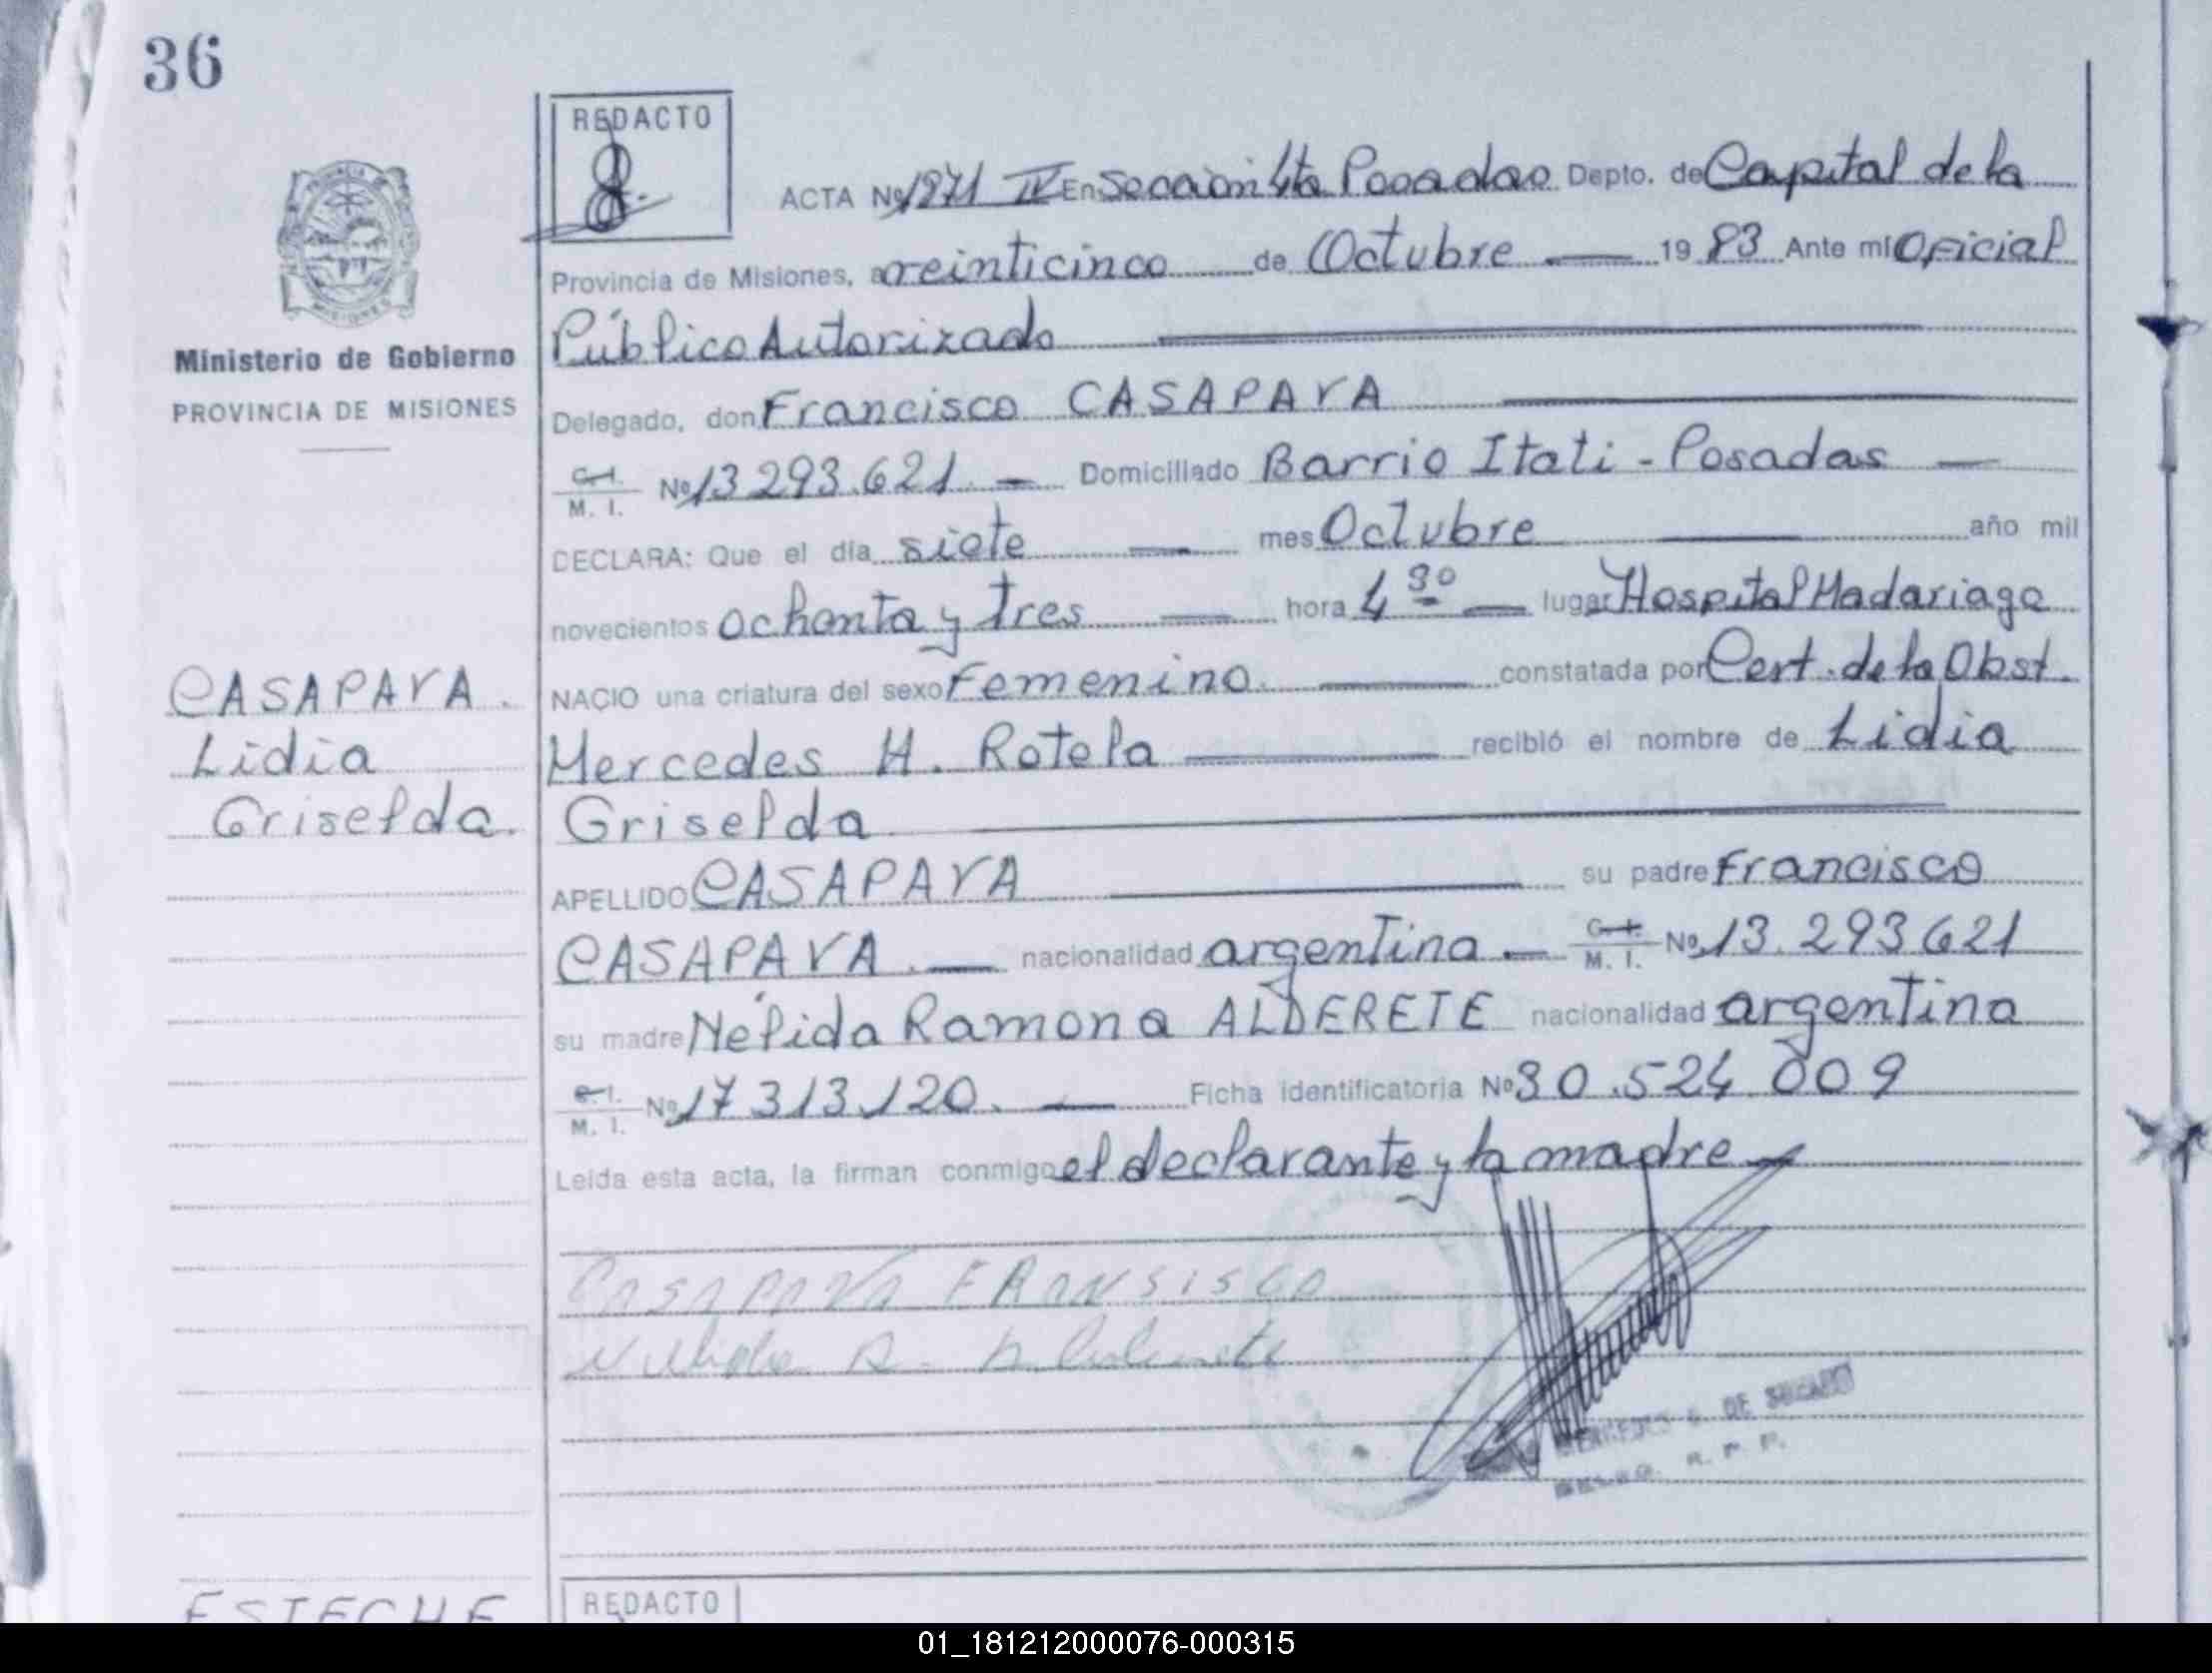 36
REDACTO
ACTA Nº 1971 IV En Sección 4ta Posadas Depto. de Capital de la
Provincia de Misiones, a veinticinco de Octubre 19 83 Ante mí Oficial
Público Autorizado
Ministerio de Gobierno
PROVINCIA DE MISIONES
Delegado, don Francisco CASAPAVA
C. I. M. I. Nº 13 293.621. Domiciliado Barrio Itati - Posadas
DECLARA: Que el día siete mes Octubre año mil
novecientos ochenta y tres hora 4 30 lugar Hospital Madariaga
CASAPAVA.
Lidia
Griselda.
NACIO una criatura del sexo Femenino. constatada por Cert. de la Obst.
Mercedes H. Rotela recibió el nombre de Lidia
Griselda
APELLIDO CASAPAVA su padre Francisco
CASAPAVA. nacionalidad argentina C. I. M. I. Nº 13.293621
su madre Nélida Ramona ALDERETE nacionalidad argentina
C. I. M. I. Nº 17 313.120. Ficha identificatoria Nº 30.524 009
Leída esta acta, la firman conmigo el declarante y la madre
CASAPAVA FRANSISCO
MERCEDES DE
R. P. P.
ESTECHE
REDACTO
01_181212000076-000315